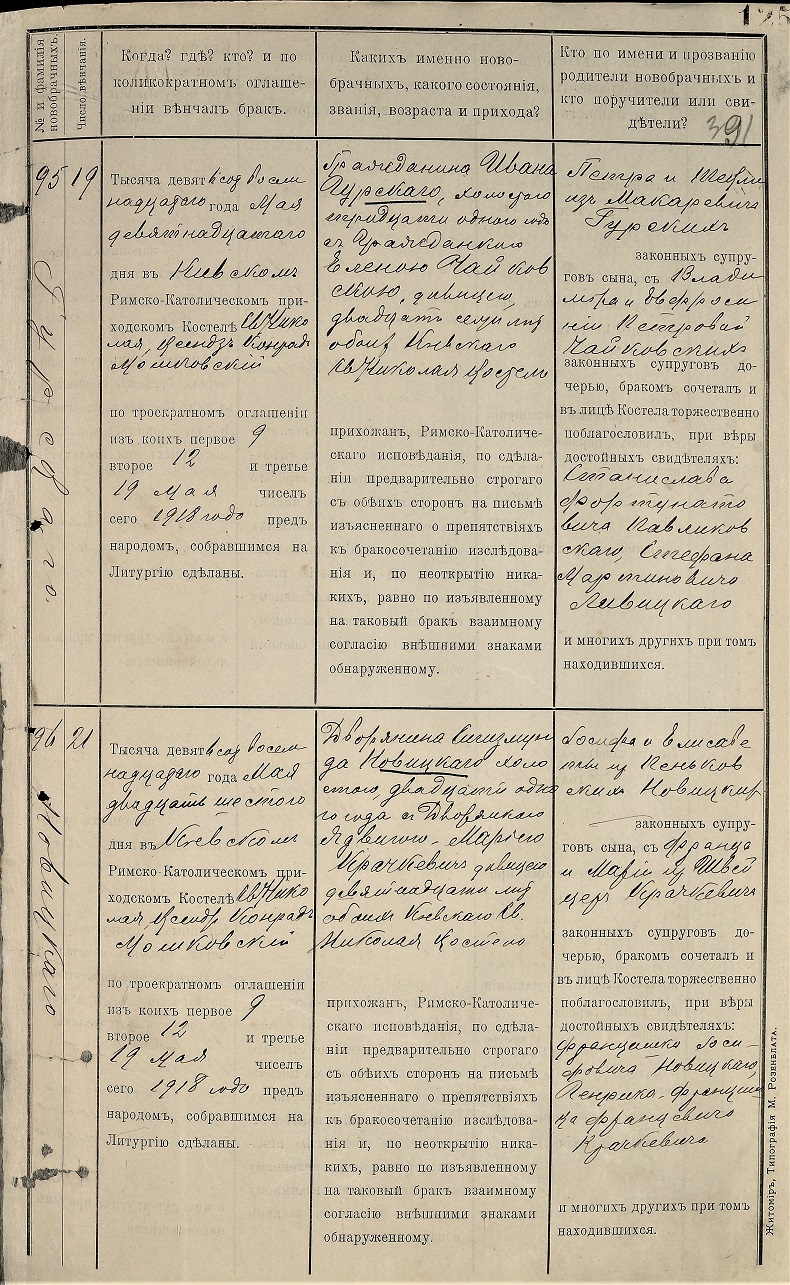 175
391
№ и фамилія новобрачныхъ.
Число вѣнчанія.
Когда? гдѣ? кто? и по
коликократномъ оглаше-
ніи вѣнчалъ бракъ.
Какихъ именно ново-
брачныхъ, какого состоянія,
званія, возраста и прихода?
Кто по имени и прозванію
родители новобрачныхъ и
кто поручители или сви-
дѣтели?
95
Гурскаго.
19
Тысяча девятьсод восем
надцатаго года Мая
девятнадцатого
дня въ Кіевскомъ
Римско-Католическомъ при-
ходскомъ Костелѣ Св Нико
лая, Ксендзъ Конрадъ
Мошковскій
по троекратномъ оглашеніи
изъ коихъ первое 9
второе 12 и третье
19 Мая чиселъ
сего 1918 года предъ
народомъ, собравшимся на
Литургію сдѣланы.
Гражданина Ивана
Гурскаго, холостаго
тридцати одного года
съ Гражданкою
Еленою Чайков
скою, дивицею,
двадцать семи лѣт
обоих Кіевскаго
Св Николая Костела
прихожанъ, Римско-Католиче-
скаго исповѣданія, по сдѣла-
ніи предварительно строгаго
съ обѣихъ сторонъ на письмѣ
изъясненнаго о препятствіяхъ
къ бракосочетанію изслѣдова-
нія и, по неоткрытію ника-
кихъ, равно по изъявленному
на таковый бракъ взаимному
согласію внѣшними знаками
обнаруженному.
Петра и
изъ Макаревичъ
Гурскихъ
законныхъ супру-
говъ сына, съ Влади
мира и Евфроси
ніи Петровой
Чайковскихъ
законныхъ супруговъ до-
черью, бракомъ сочеталъ и
въ лицѣ Костела торжественно
поблагословилъ, при вѣры
достойныхъ свидѣтеляхъ:
Станислава
Фортунато
вича Павликов
скаго, Стефана
Мартиновича
Ливицкаго
и многихъ другихъ при томъ
находившихся.
96
Новицкаго
21
Тысяча девятьсод восем
надцадаго года Мая
двадцать шестого
дня въ Кіевскомъ
Римско-Католическомъ при-
ходскомъ Костелѣ Св Нико
лая, Ксендз Конрадъ
Мошковскій
по троекратномъ оглашеніи
изъ коихъ первое 9
второе 12 и третье
19 мая чиселъ
сего 1918 года предъ
народомъ, собравшимся на
Литургію сдѣланы.
Дворянина Сигизмун
да Новицкаго холо
стого, двадцати одно
го года съ Дворянкою
Ядвигою-Маріею
Крачкевичъ дивицею
девятнадцати лѣт
обоих Кіевскаго Св.
Николая Костела
прихожанъ, Римско-Католиче-
скаго исповѣданія, по сдѣла-
ніи предварительно строгаго
съ обѣихъ сторонъ на письмѣ
изъясненнаго о препятствіяхъ
къ бракосочетанію изслѣдова-
нія и, по неоткрытію ника-
кихъ, равно по изъявленному
на таковый бракъ взаимному
согласію внѣшними знаками
обнаруженному.
Іосифа и Елисаве
ты из Пеньков
скихъ Новицких
законныхъ супру-
говъ сына, съ Франца
и Маріи из Швей
церъ Крачкевичъ
законныхъ супруговъ до-
черью, бракомъ сочеталъ и
въ лицѣ Костела торжественно
поблагословилъ, при вѣры
достойныхъ свидѣтеляхъ:
Францишка Іоси-
фовича Новицкаго,
Генрика-Франциш
ка Францевича
Крачкевича
и многихъ другихъ при томъ
находившихся.
Житоміръ, Типографія М. Розенблата.